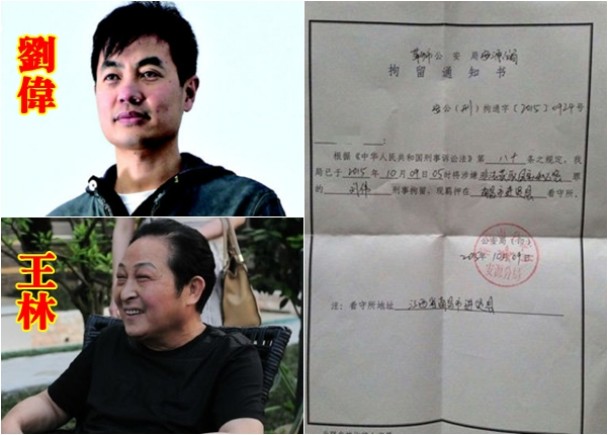 劉偉
王林
公安局
拘留通知书
公(刑)拘通字〔2015〕0924号
根据《中华人民共和国刑事诉讼法》第八十条之规定，我
局已于2015年10月09日05时将涉嫌非法获取国家秘密罪
的刘伟刑事拘留，现羁押在看守所。
公安局（印）
2015年10月09日
注：看守所地址江西省南昌市进贤县